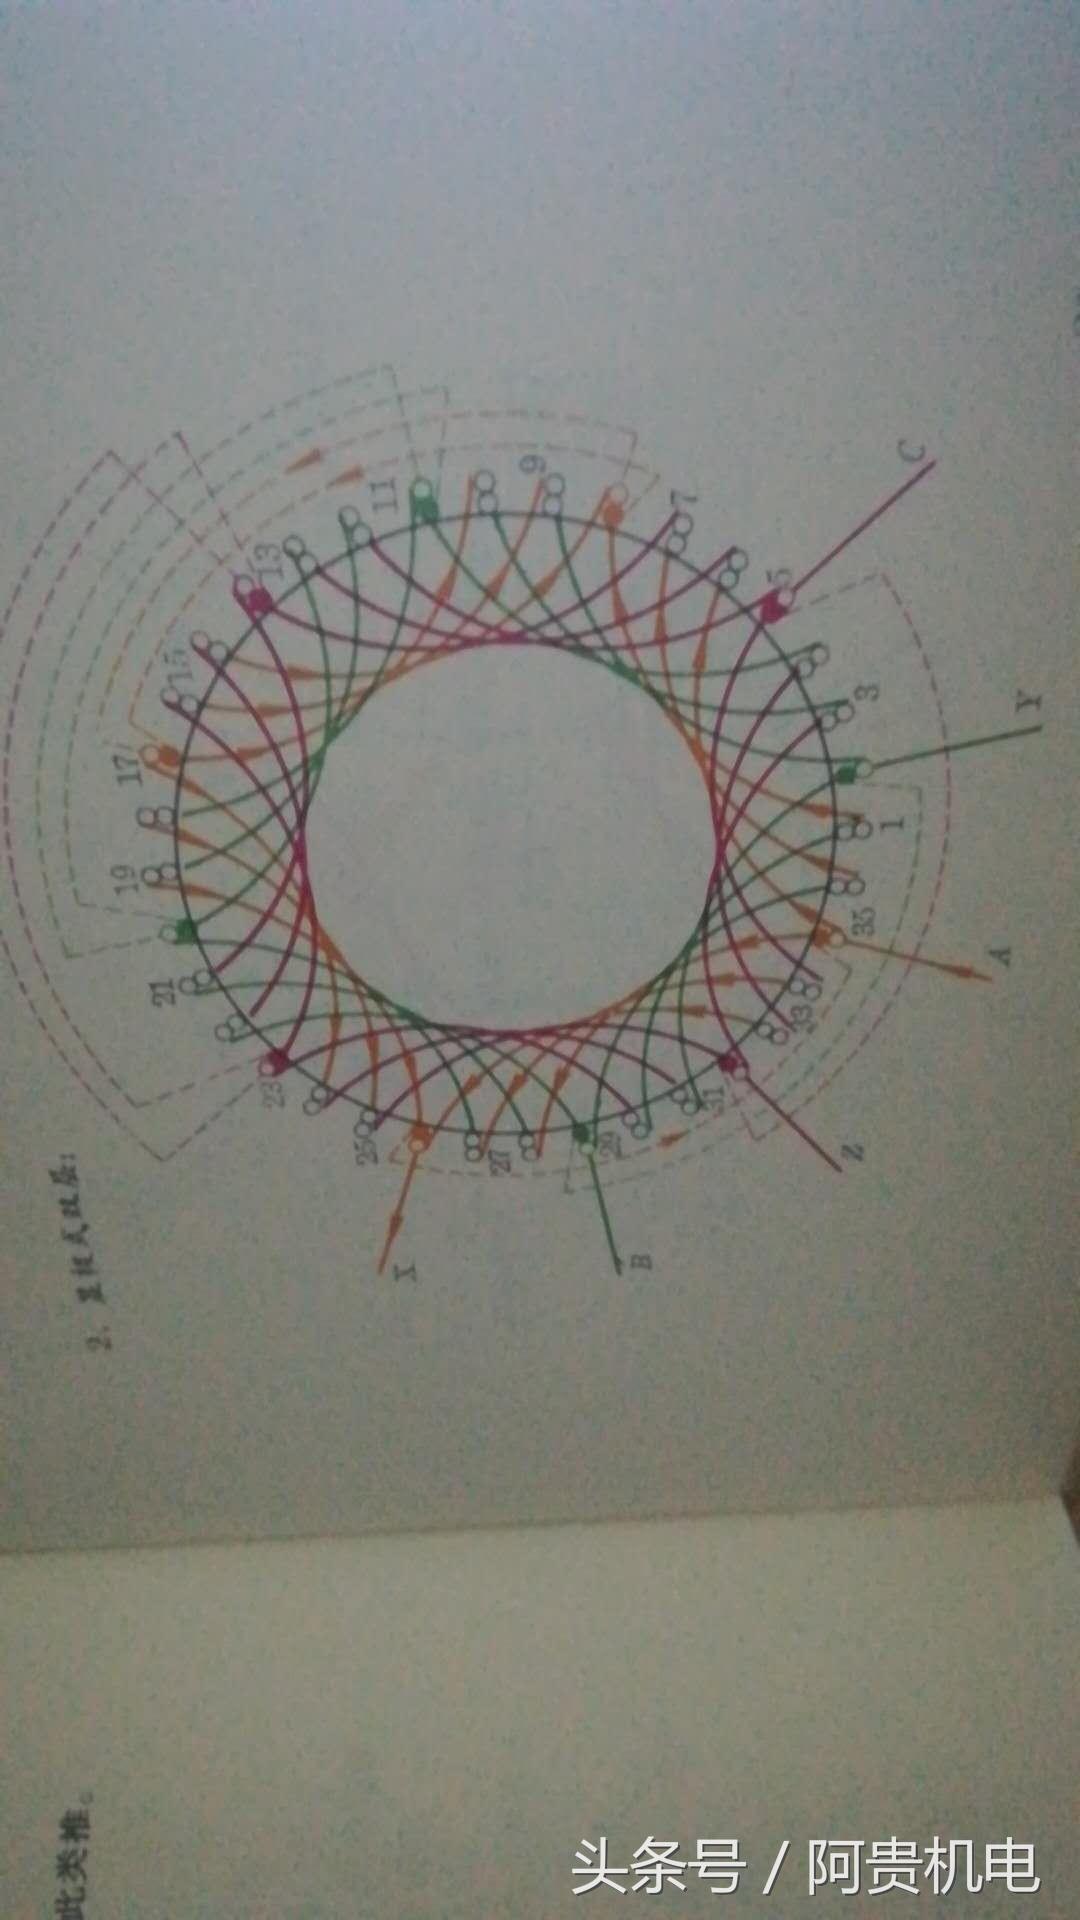 2. 显极式双层:
1
3
5
7
9
11
13
15
17
19
21
23
25
27
29
31
33
35
A
B
C
X
Y
Z
此类推。
头条号 / 阿贵机电